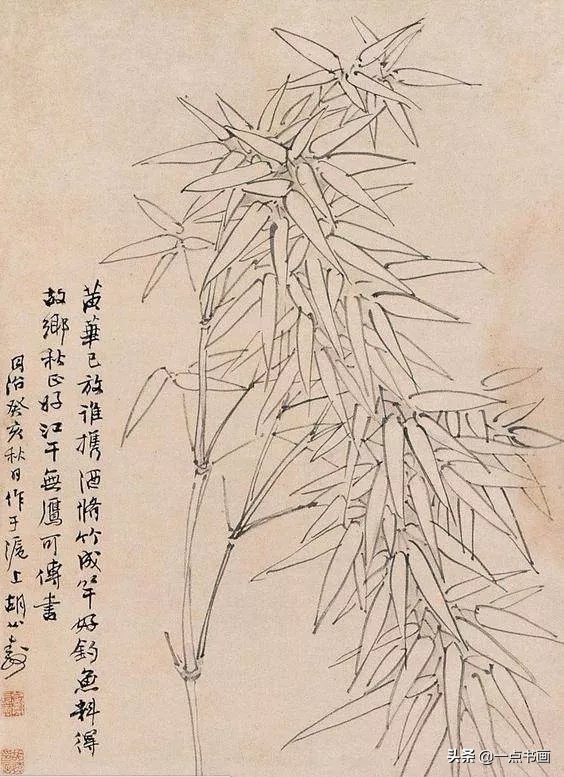 黃華已放誰携酒脩竹成竿好釣魚料得
故鄉秋正好江干無鴈可傳書
同治癸亥秋日作于滬上胡公壽
头条 @一点书画